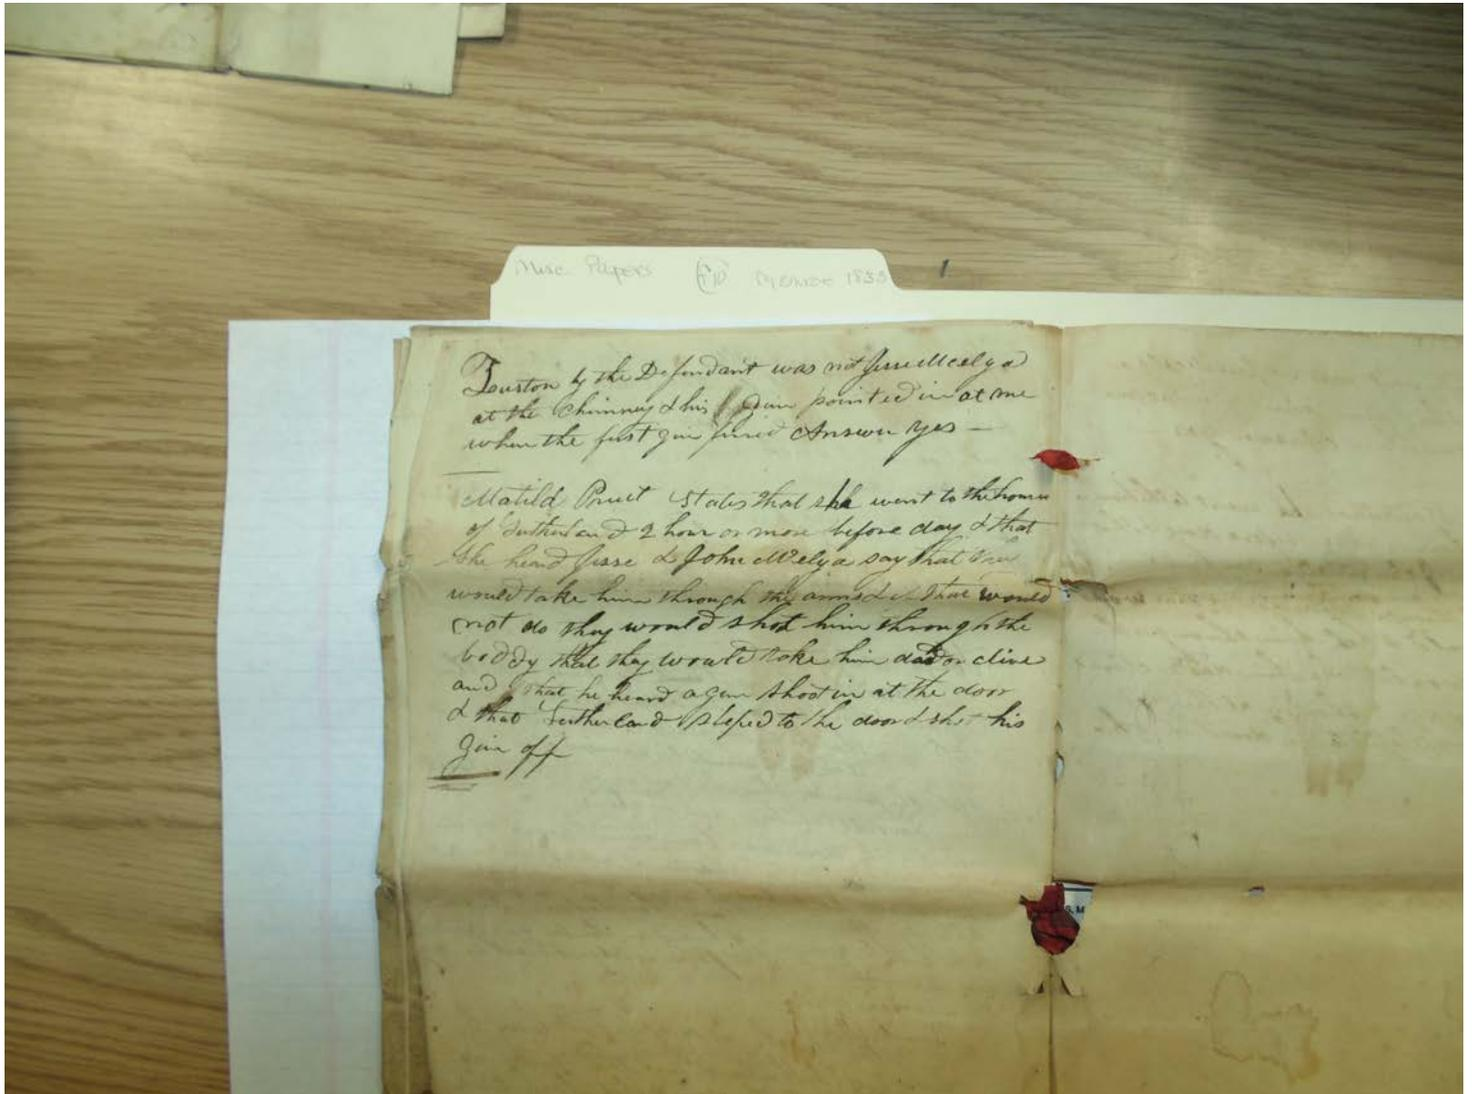 Misc. Papers Monroe 1833
Queston by the Defendant was not Jesse Mcelyea
at the Chimney & his Gun pointed in at me
when the first gun fired Answer Yes —
Matild Pruet States that she went to the house
of Sutherland 2 hour or more before day & that
She heard Jesse & John McElyea say that
would take him through the arms & if that would
not do thay would shot him through the
boddy that thay would take him dad or alive
and that he heard a gun shoot in at the door
& that Sutherland steped to the door & shot his
Gun off
S.M